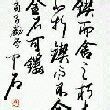 鍥而舍之朽
木不折鍥而不舍
金石可鏤